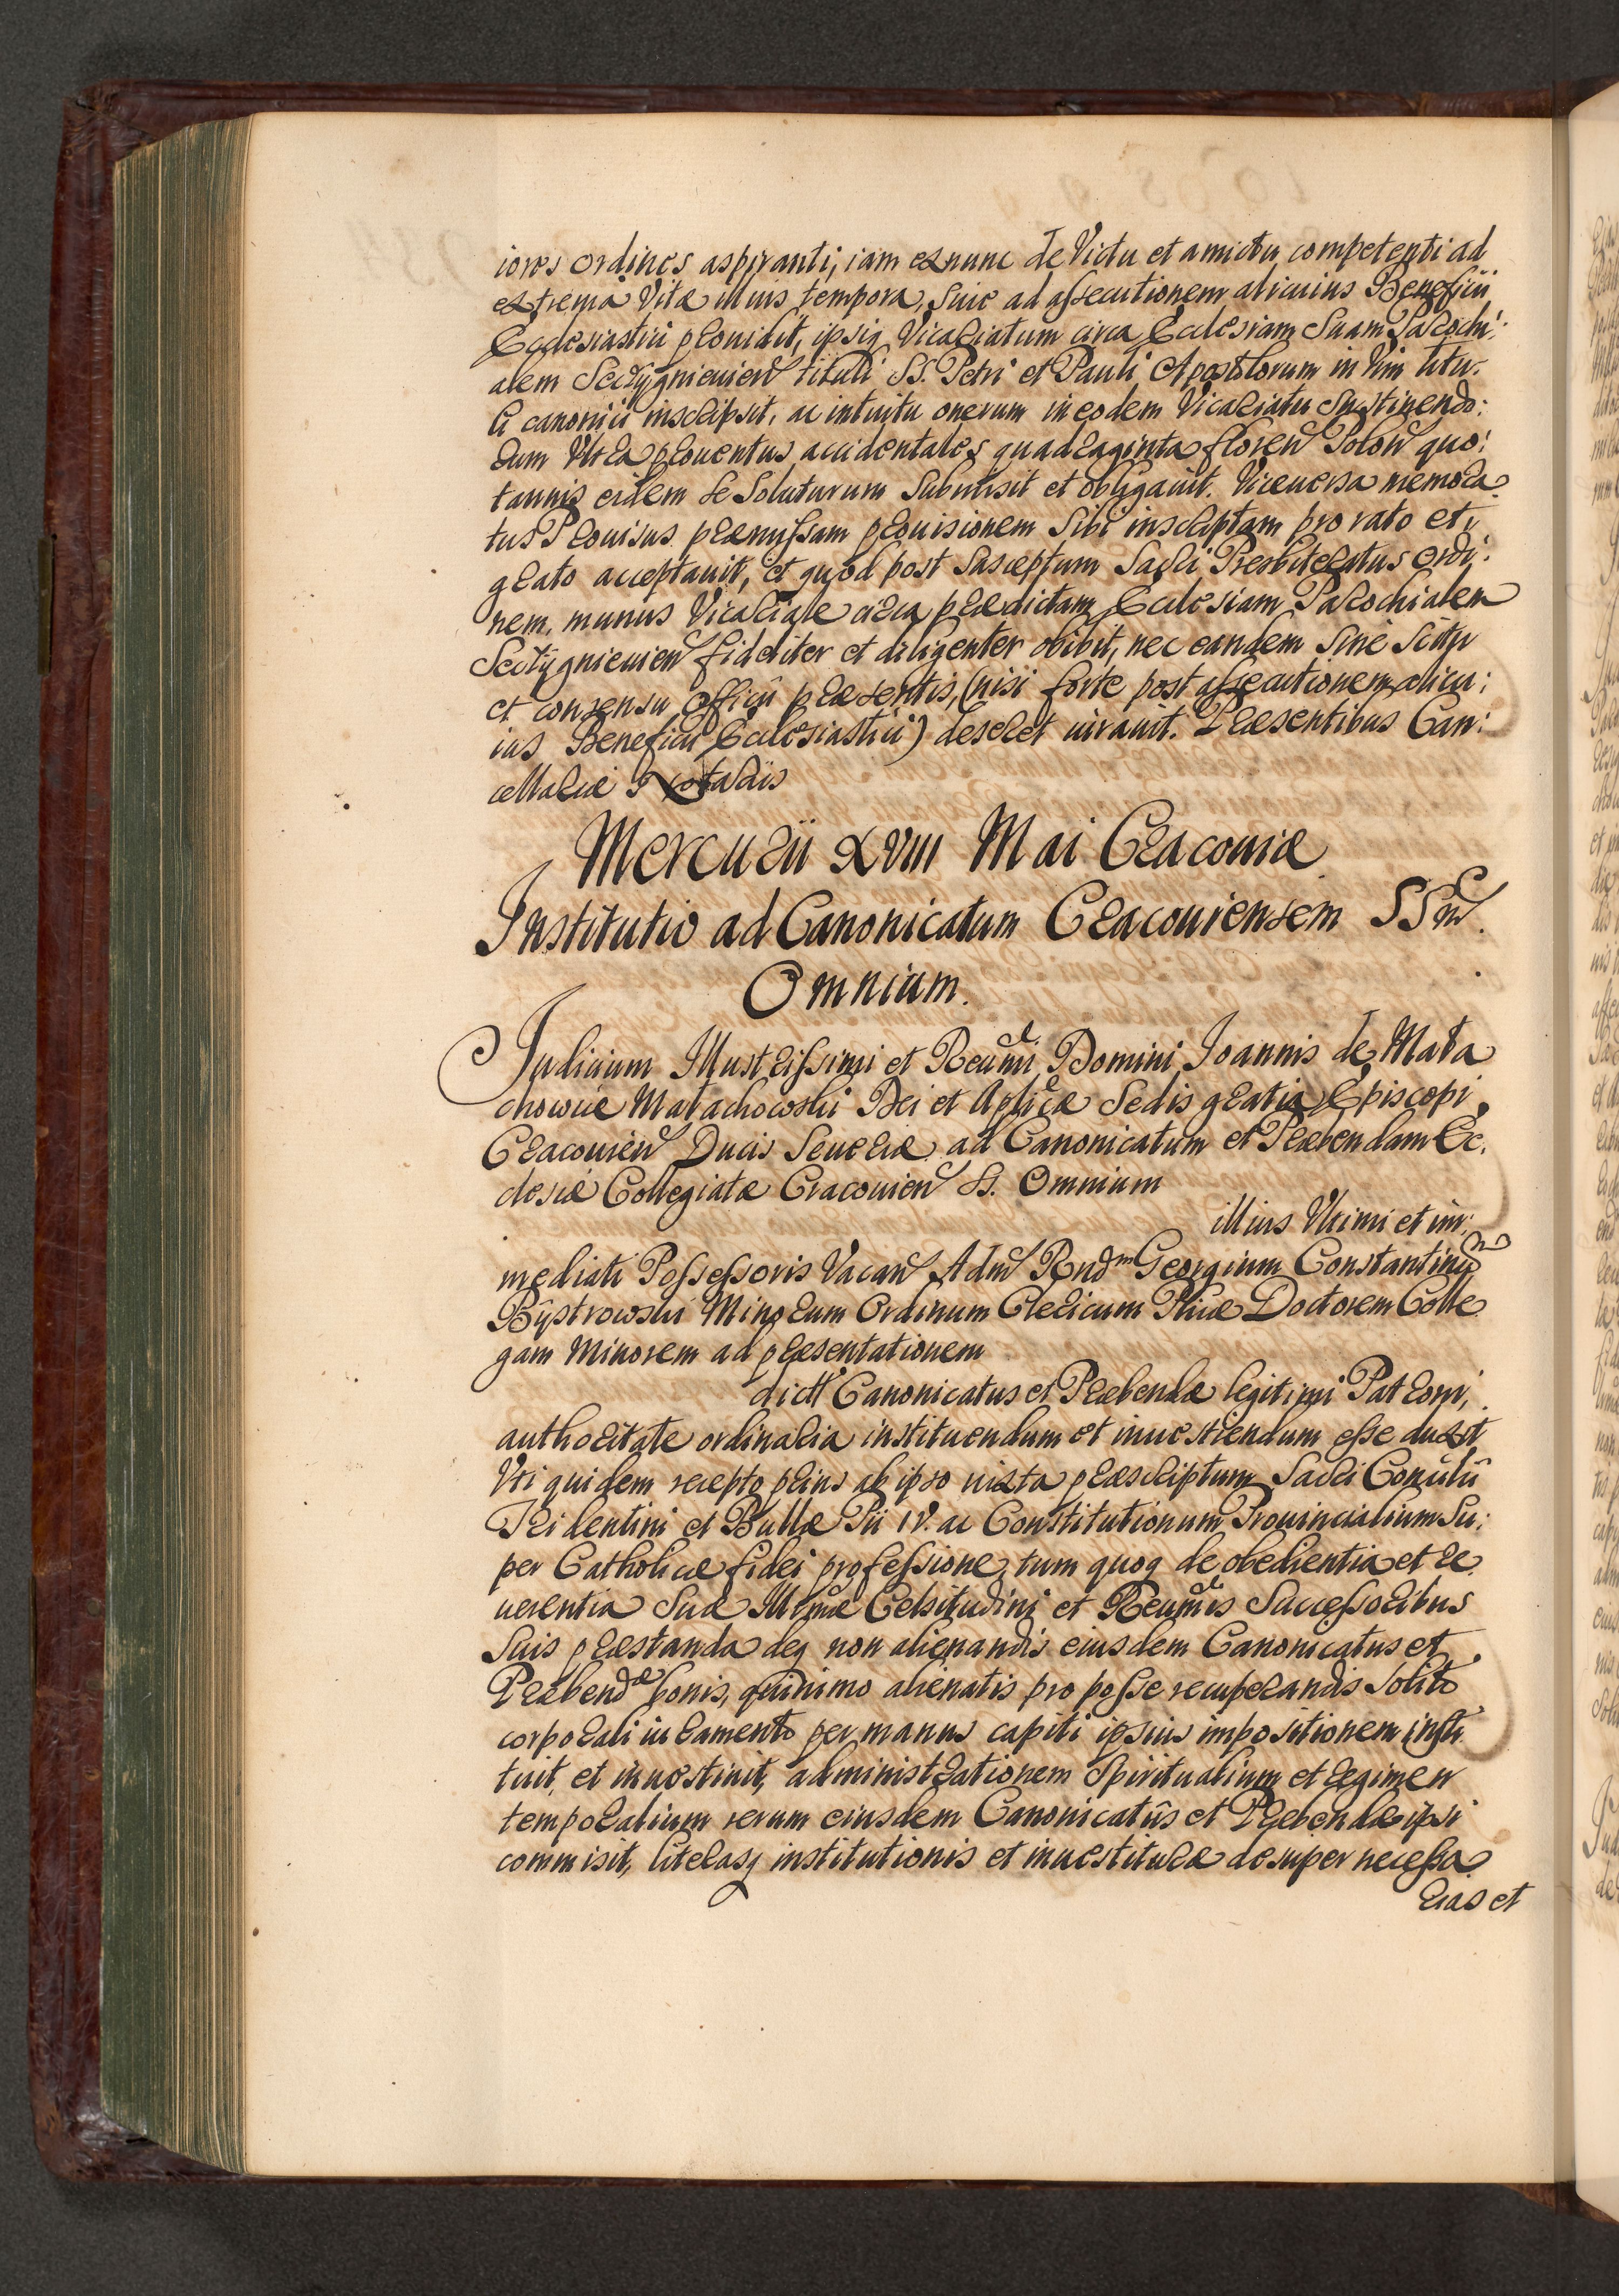 iores ordines aspiranti, iam ex nunc de Victu et amictu competenti ad
extrema Vitæ illius tempora, siue ad assecutionem alicuius Beneficii
Ecclesiastici prouidit, ipsiq Vicariatum circa Ecclesiam Suam Parochi:
alem tituli SS. Petri et Pauli Apostolorum in Vim titu:
li canonici inscripsit, ac intuitu onerum in eodem Vicariatu sustinendo:
rum Vltra prouentus accidentales quadraginta floren Polon quo:
tannis eidem se Soluturum Submisit et obligauit. Viceuersa memora
tus Prouisus præmissam prouisionem Sibi inscriptam pro rato et
grato acceptauit, et quod post Susceptum Sacri Presbiteratus ordi:
nem, munus Vicariale circa prædictam Ecclesiam Parochialem
fideliter et diligenter obibit, nec eandem Sine Scitu
et consensu officii præsentis, (nisi forte post assecutionem alicu:
ius Beneficii Ecclesiastici) deseret iurauit. Præsentibus Can:
cellariæ Notariis
Mercurii XVIII Mai Cracouiæ
Institutio ad Canonicatum Cracouiensem SSrũ.
Omnium.
Iudicium Illustrissimi et Reumi Domini Ioannis de Mała
chowice Małachowski Dei et Aplicæ Sedis gratia Episcopi
Cracouien Ducis Seueriæ ad Canonicatum et Præbendam Ec:
clesiæ Collegiatæ Cracouien SS. Omnium
illius Vltimi et im:
mediati Possessoris Vacan Adm Rndm Georgium Constantinũ
Bÿstrowski Minorum Ordinum Clericum Phiæ Doctorem Colle
gam Minorem ad præsentationem
dict Canonicatus et Præbendæ legitimi Patroni,
authoritate ordinaria instituendum et inuestiendum esse duxit
Vti quidem recepto prius ab ipso iuxta præscriptum Sacri Concilii
Tridentini et Bullæ Pii IV. ac Constitutionum Prouincialium Su:
per Catholicæ fidei professione, tum quoq de obedientia et re
uerentia Suæ Illmæ Celsitudini et Reumis Successoribus
Suis præstanda deq non alienandis eiusdem Canonicatus et
Præbendæ bonis, quinimo alienatis pro posse recuperandis Solito
corporali iuramento per manus capiti ipsius impositionem insti
tuit, et inuestiuit, administrationem Spiritualium et regimen
temporalium rerum eiusdem Canonicatûs et Præbendæ ipsi
commisit, literasq institutionis et inuestituræ desuper necessa
rias et